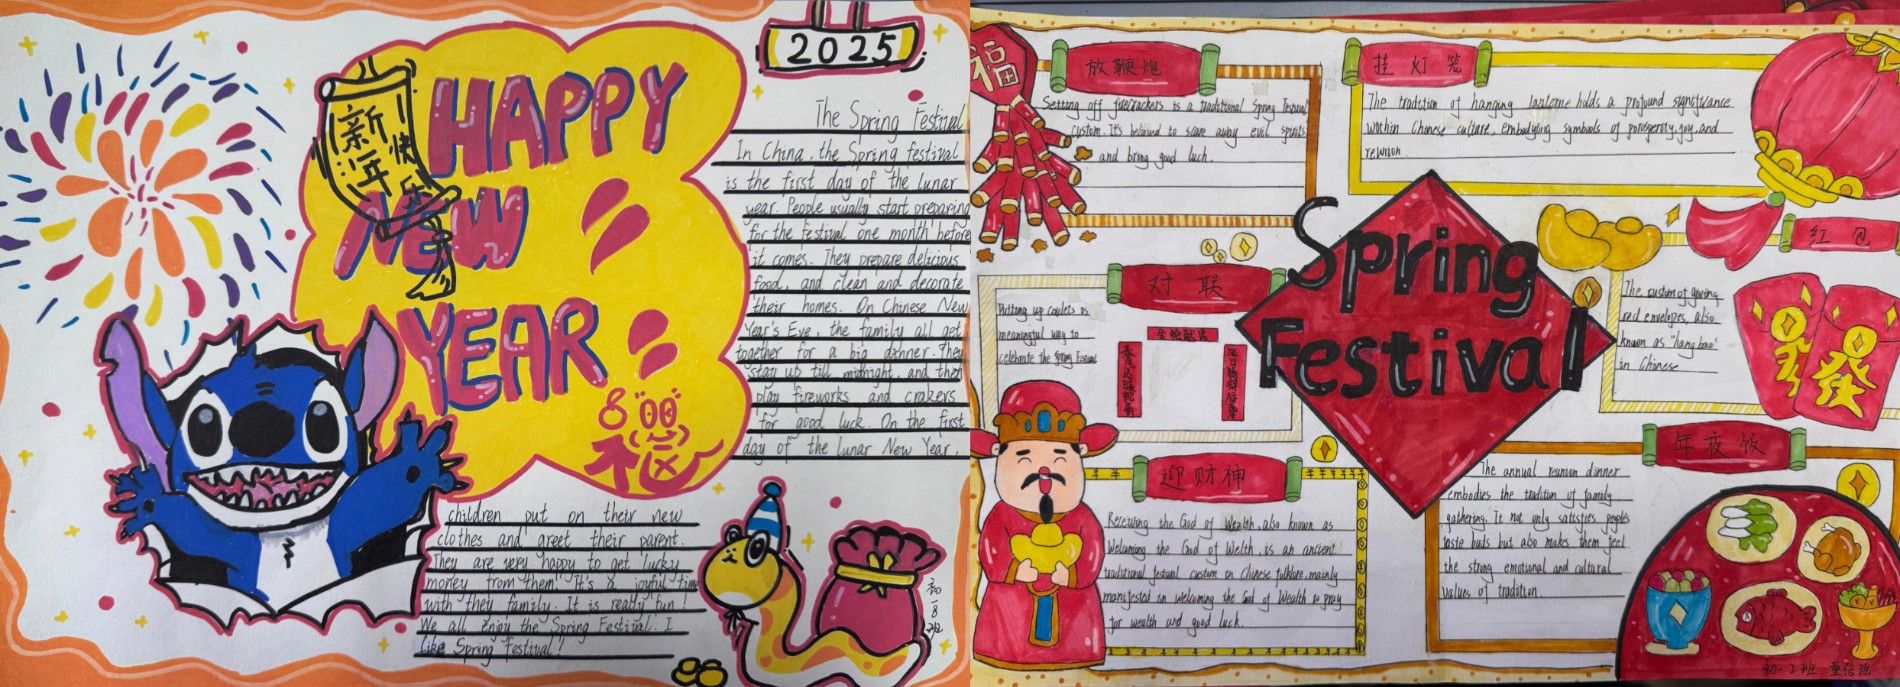 2025
新年快乐
HAPPY
NEW
YEAR
The Spring Festival
In China, the Spring festival
is the first day of the lunar
year. People usually start preparing
for the festival one month before
it comes. They prepare delicious
food, and clean and decorate
their homes. On Chinese New
Year's Eve, the family all get
together for a big dinner. They
stay up till midnight, and then
play fireworks and crakers
for good luck. On the first
day of the lunar New Year,
children put on their new
clothes and greet their parent.
They are very happy to get lucky
money from them. It's a joyful time
with they family. It is really fun!
We all enjoy the Spring Festival. I
like Spring Festival!
初一8班
福
放鞭炮
Setting off firecrackers is a traditional Spring Festival
custom. It's believed to scare away evil spirits
and bring good luck.
挂灯笼
The tradition of hanging lanterns holds a profound significance
within Chinese culture, embodying symbols of porosperity, joy, and
reunion.
Spring
Festival
对联
Putting up couplets is
meaningful way to
celebrate the Spring Festival
红包
The custom of giving
red envelopes, also
known as "hang bao"
in Chinese
發
迎财神
Receiving the God of Wealth, also known as
Welcoming the God of Welth, is an ancient
traditional festival custom in Chinese folklore, mainly
manifested in welcoming the God of Wealth to pray
for wealth and good luck.
年夜饭
The annual reunion dinner
embodies the tradition of family
gathering. It not only satisfies peoples
taste buds but also makes them feel
the strong emotional and cultural
values of tradition.
初一2班